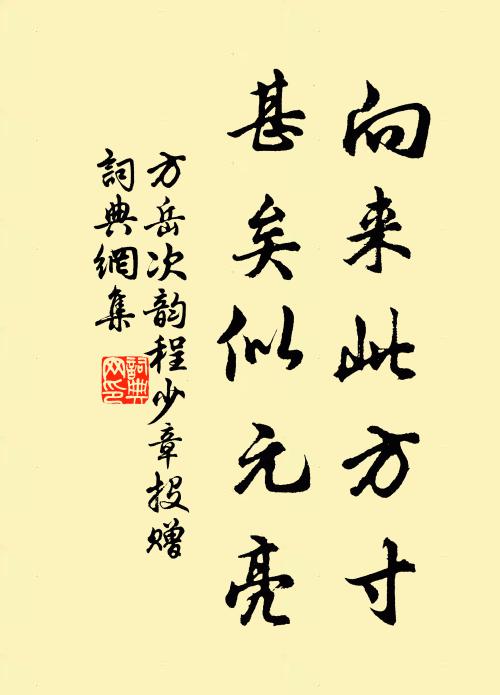 向来此方寸
甚矣似元亮
方岳次韵程少章投赠
詞典網集
詞典
网印